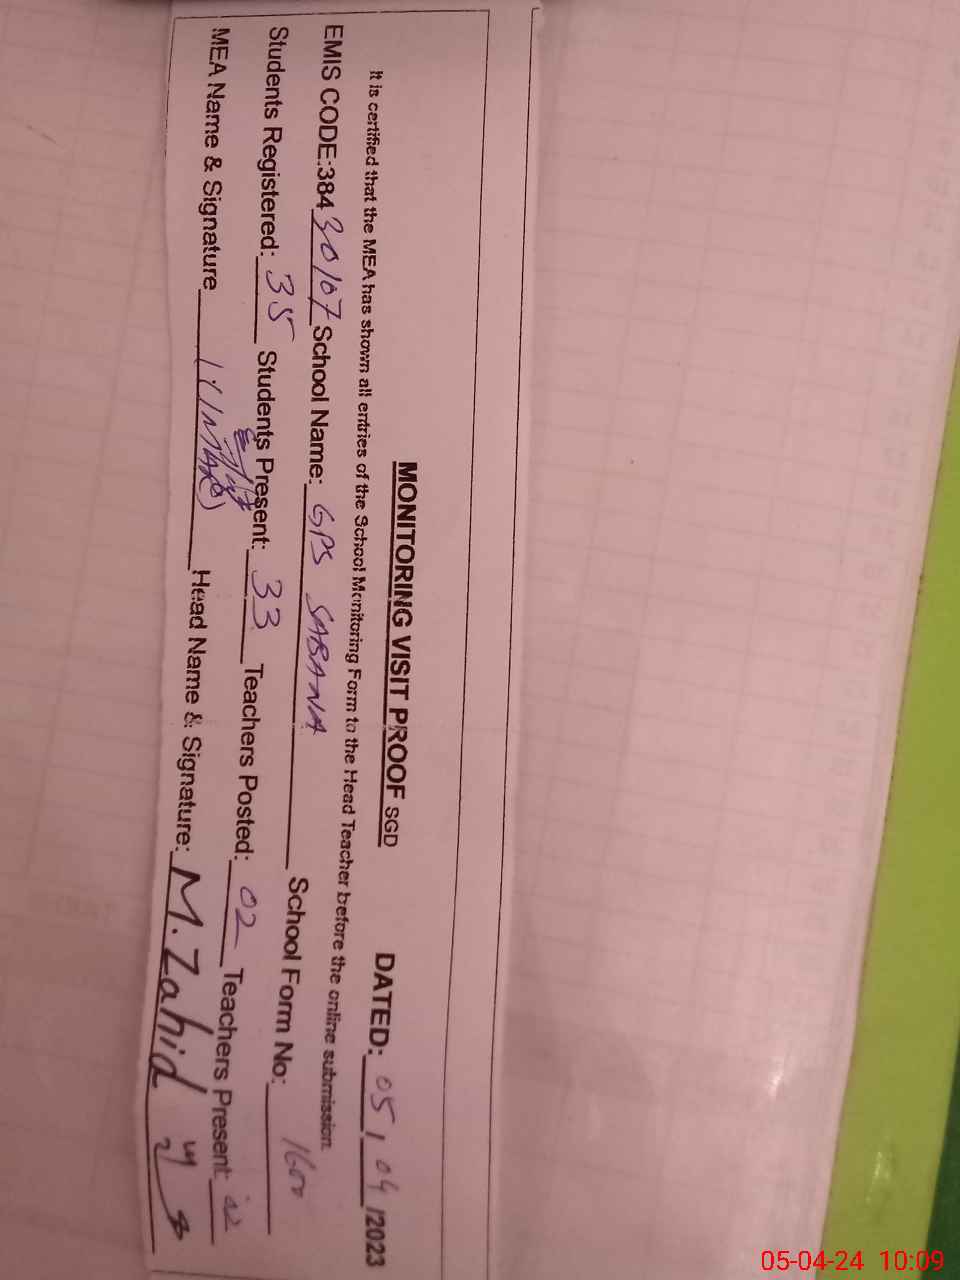 MONITORING VISIT PROOF SGD DATED: 05/04/2023
It is certified that the MEA has shown all entries of the School Monitoring Form to the Head Teacher before the online submission.
EMIS CODE:38430107 School Name: GPS SABANA School Form No:
Students Registered: 35 Students Present: 33 Teachers Posted: 02 Teachers Present: 02
MEA Name & Signature Head Name & Signature: M. Zahid
05-04-24 10:09